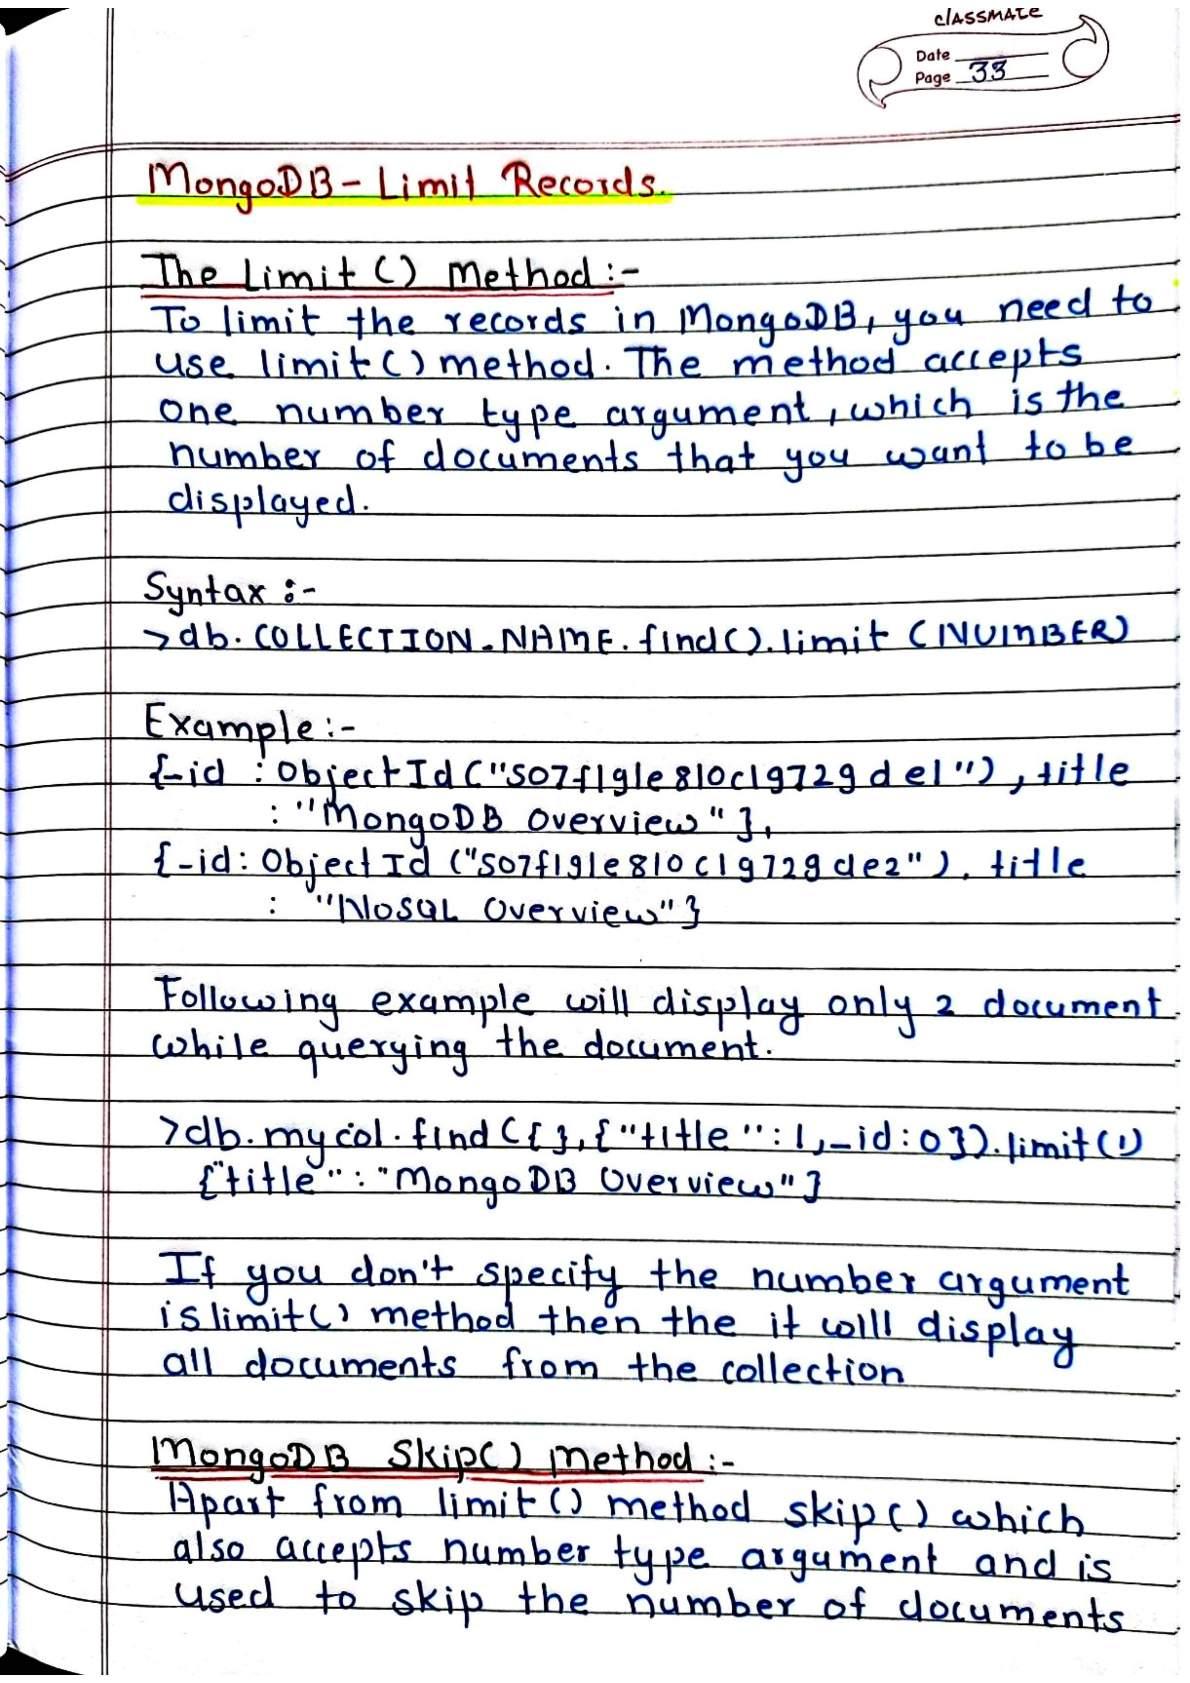 classmate
Date
Page 33
MongoDB - Limit Records.
The Limit() Method :-
To limit the records in MongoDB, you need to
use limit() method. The method accepts
one number type argument, which is the
number of documents that you want to be
displayed.
Syntax :-
>db.COLLECTION_NAME.find().limit (NUMBER)
Example :-
{_id : ObjectId("507f191e810c19729de1"), title
: "MongoDB Overview"},
{_id: ObjectId ("507f191e810c19729de2"), title
: "NoSQL Overview"}
Following example will display only 2 document
while querying the document.
>db.mycol.find({},{"title":1,_id:0}).limit(1)
{"title":"MongoDB Overview"}
If you don't specify the number argument
is limit() method then the it will display
all documents from the collection
MongoDB Skip() Method :-
Apart from limit() method skip() which
also accepts number type argument and is
used to skip the number of documents